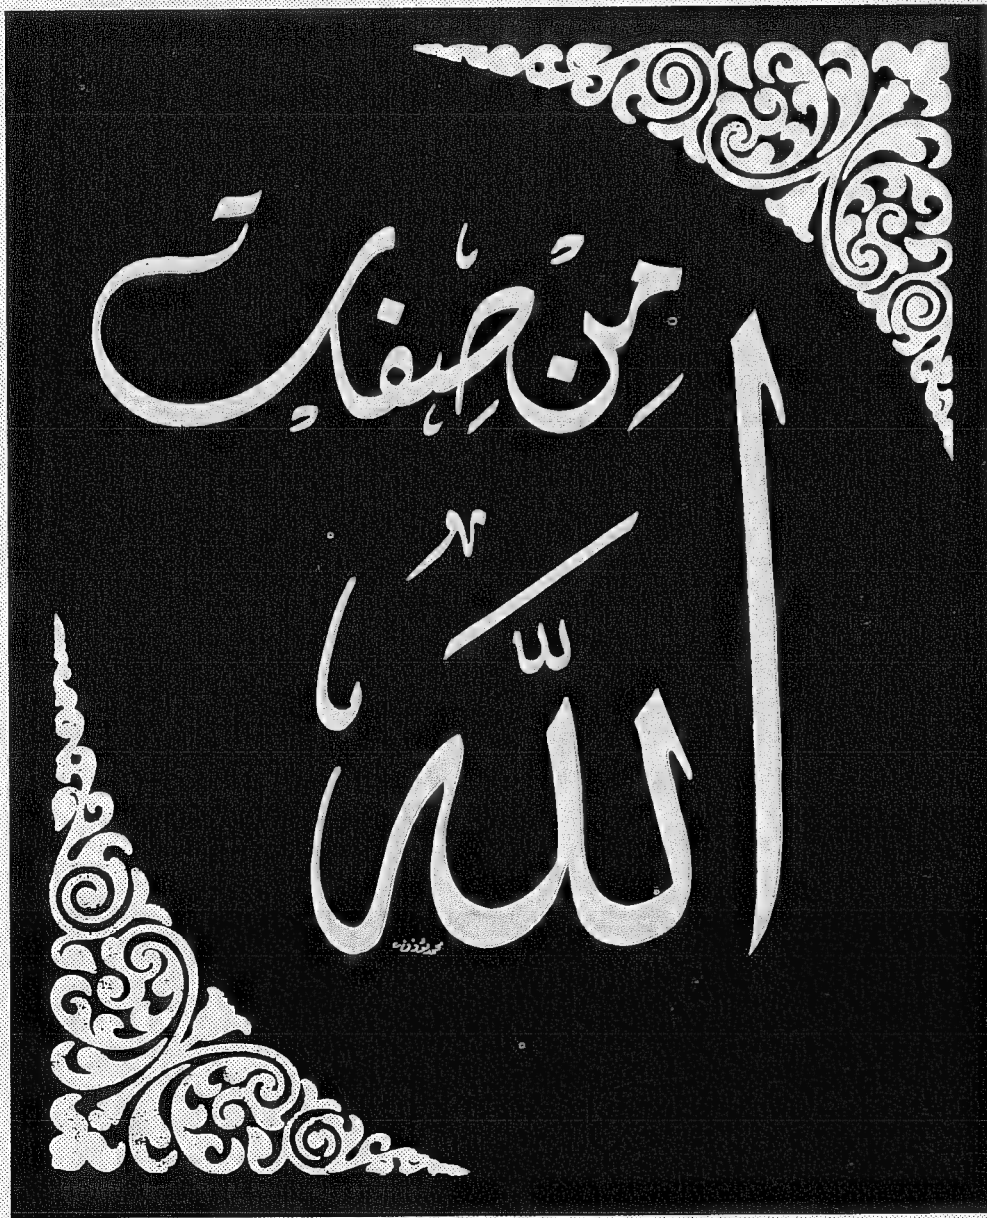 مِنْ صِفَات
اللَّه